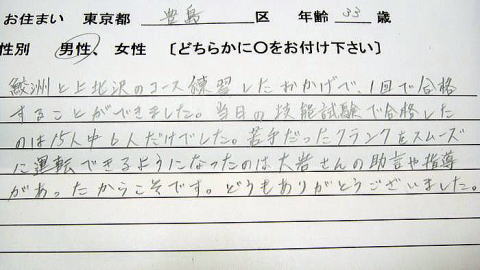 お住まい 東京都 豊島 区 年齢 33 歳
性別 男性、女性 〔どちらかに〇をお付け下さい〕
鮫洲と上北沢のコース練習したおかげで、1回で合格
することができました。当日の技能試験で合格した
のは15人中6人だけでした。苦手だったクランクもスムーズ
に運転できるようになったのは大岩さんの助言や指導
があったからこそです。どうもありがとうございました。